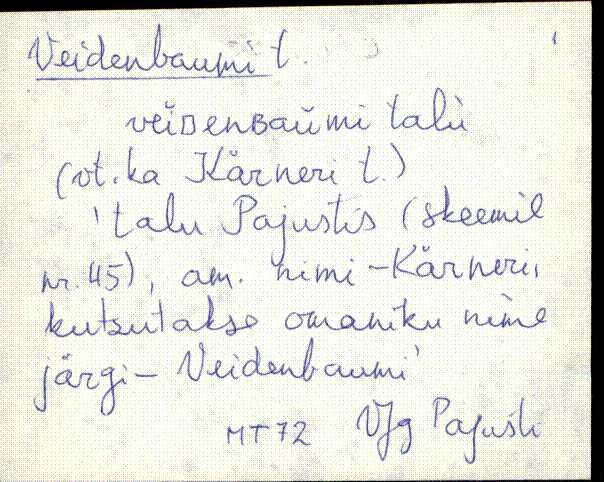 Veidenbaumi t.
vĕiᴅenʙaŭmi talù
(vt. ka Kärneri t.)
'talu Pajustis (skeemil
nr. 45), am. nimi - Kärneri,
kutsutakse omaniku nime
järgi - Veidenbaumi'
MT72 VJg Pajusti